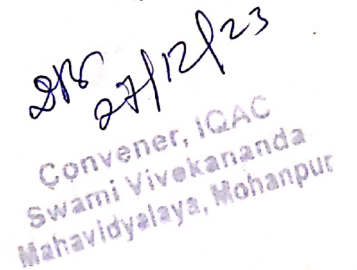 27/12/23
Convener, IQAC
Swami Vivekananda
Mahavidyalaya, Mohanpur